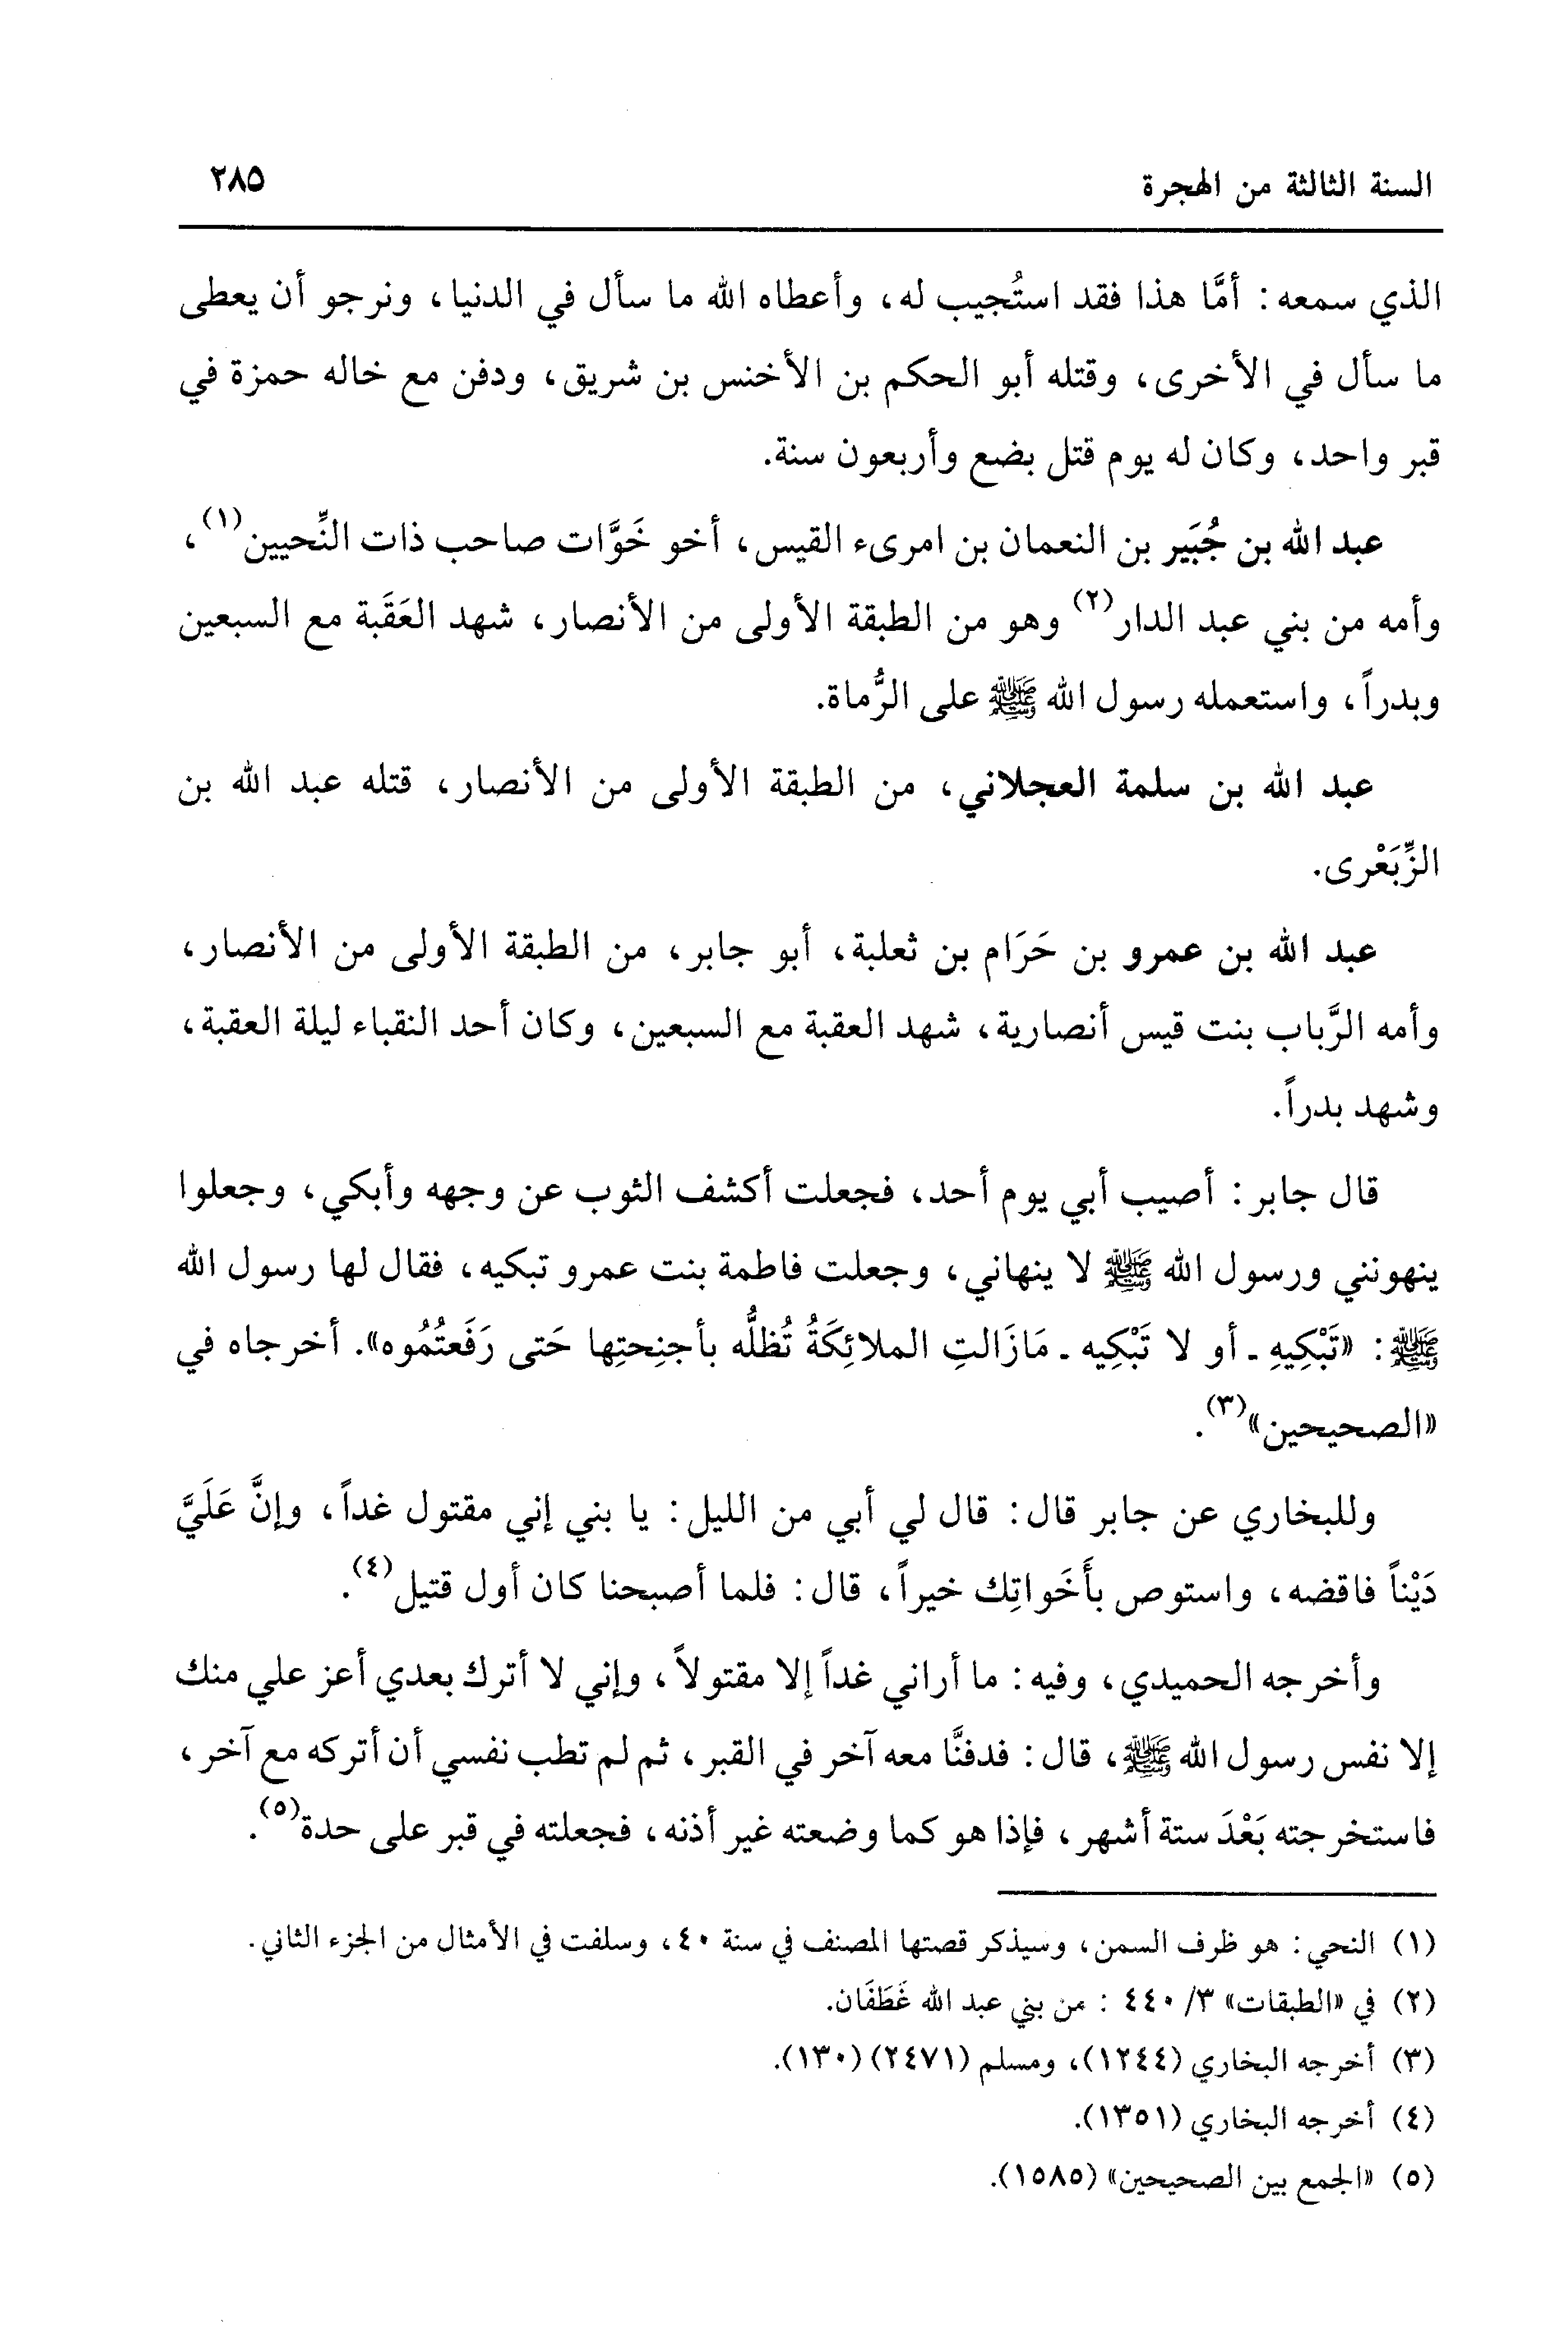 السنة الثالثة من الهجرة ٢٨٥
الذي سمعه: أمَّا هذا فقد استُجيب له، وأعطاه الله ما سأل في الدنيا، ونرجو أن يعطى
ما سأل في الأخرى، وقتله أبو الحكم بن الأخنس بن شريق، ودفن مع خاله حمزة في
قبر واحد، وكان له يوم قتل بضع وأربعون سنة.
عبد الله بن جُبَير بن النعمان بن امرىء القيس، أخو خَوَّات صاحب ذات النِّحيين(١)،
وأمه من بني عبد الدار(٢) وهو من الطبقة الأولى من الأنصار، شهد العَقَبة مع السبعين
وبدراً، واستعمله رسول الله ﷺ على الرُّماة.
عبد الله بن سلمة العجلاني، من الطبقة الأولى من الأنصار، قتله عبد الله بن
الزِّبَعْرى.
عبد الله بن عمرو بن حَرَام بن ثعلبة، أبو جابر، من الطبقة الأولى من الأنصار،
وأمه الرَّباب بنت قيس أنصارية، شهد العقبة مع السبعين، وكان أحد النقباء ليلة العقبة،
وشهد بدراً.
قال جابر: أصيب أبي يوم أحد، فجعلت أكشف الثوب عن وجهه وأبكي، وجعلوا
ينهونني ورسول الله ﷺ لا ينهاني، وجعلت فاطمة بنت عمرو تبكيه، فقال لها رسول الله
ﷺ: «تَبْكِيهِ ـ أو لا تَبْكِيه ـ مَازَالتِ الملائِكَةُ تُظلُّه بأجنِحتِها حَتى رَفَعتُمُوه». أخرجاه في
«الصحيحين»(٣).
وللبخاري عن جابر قال: قال لي أبي من الليل: يا بني إني مقتول غداً، وإنَّ عَلَيَّ
دَيْناً فاقضه، واستوص بأَخَواتِك خيراً، قال: فلما أصبحنا كان أول قتيل(٤).
وأخرجه الحميدي، وفيه: ما أراني غداً إلا مقتولاً، وإني لا أترك بعدي أعز علي منك
إلا نفس رسول الله ﷺ، قال: فدفنَّا معه آخر في القبر، ثم لم تطب نفسي أن أتركه مع آخر،
فاستخرجته بَعْدَ ستة أشهر، فإذا هو كما وضعته غير أذنه، فجعلته في قبر على حدة(٥).
(١) النحي: هو ظرف السمن، وسيذكر قصتها المصنف في سنة ٤٠، وسلفت في الأمثال من الجزء الثاني.
(٢) في «الطبقات» ٣/ ٤٤٠ : من بني عبد الله غَطَفَان.
(٣) أخرجه البخاري (١٢٤٤)، ومسلم (٢٤٧١) (١٣٠).
(٤) أخرجه البخاري (١٣٥١).
(٥) «الجمع بين الصحيحين» (١٥٨٥).